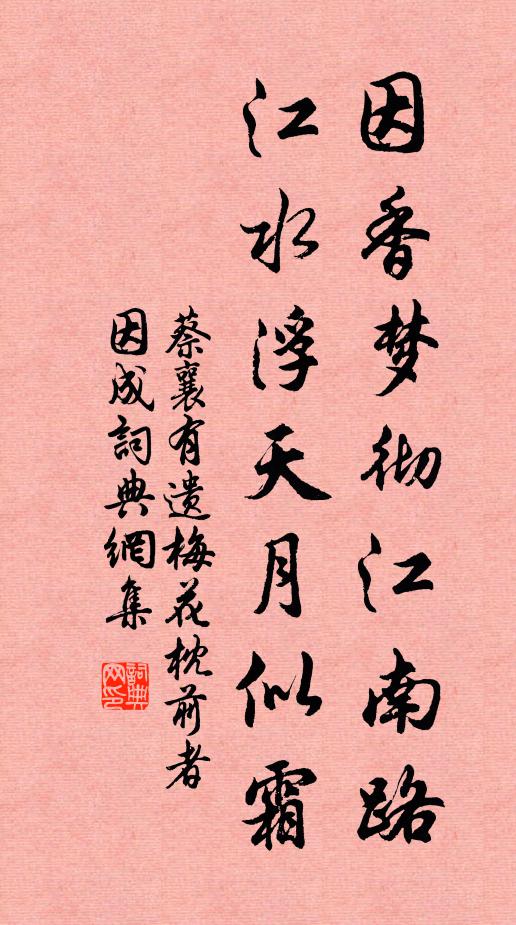 因香梦彻江南路
江水浮天月似霜
蔡襄有遗梅花枕前者
因成詞典網集
詞典
网印